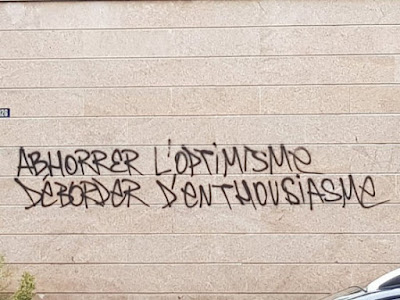 ABHORRER L'OPTIMISME
DÉBORDER D'ENTHOUSIASME